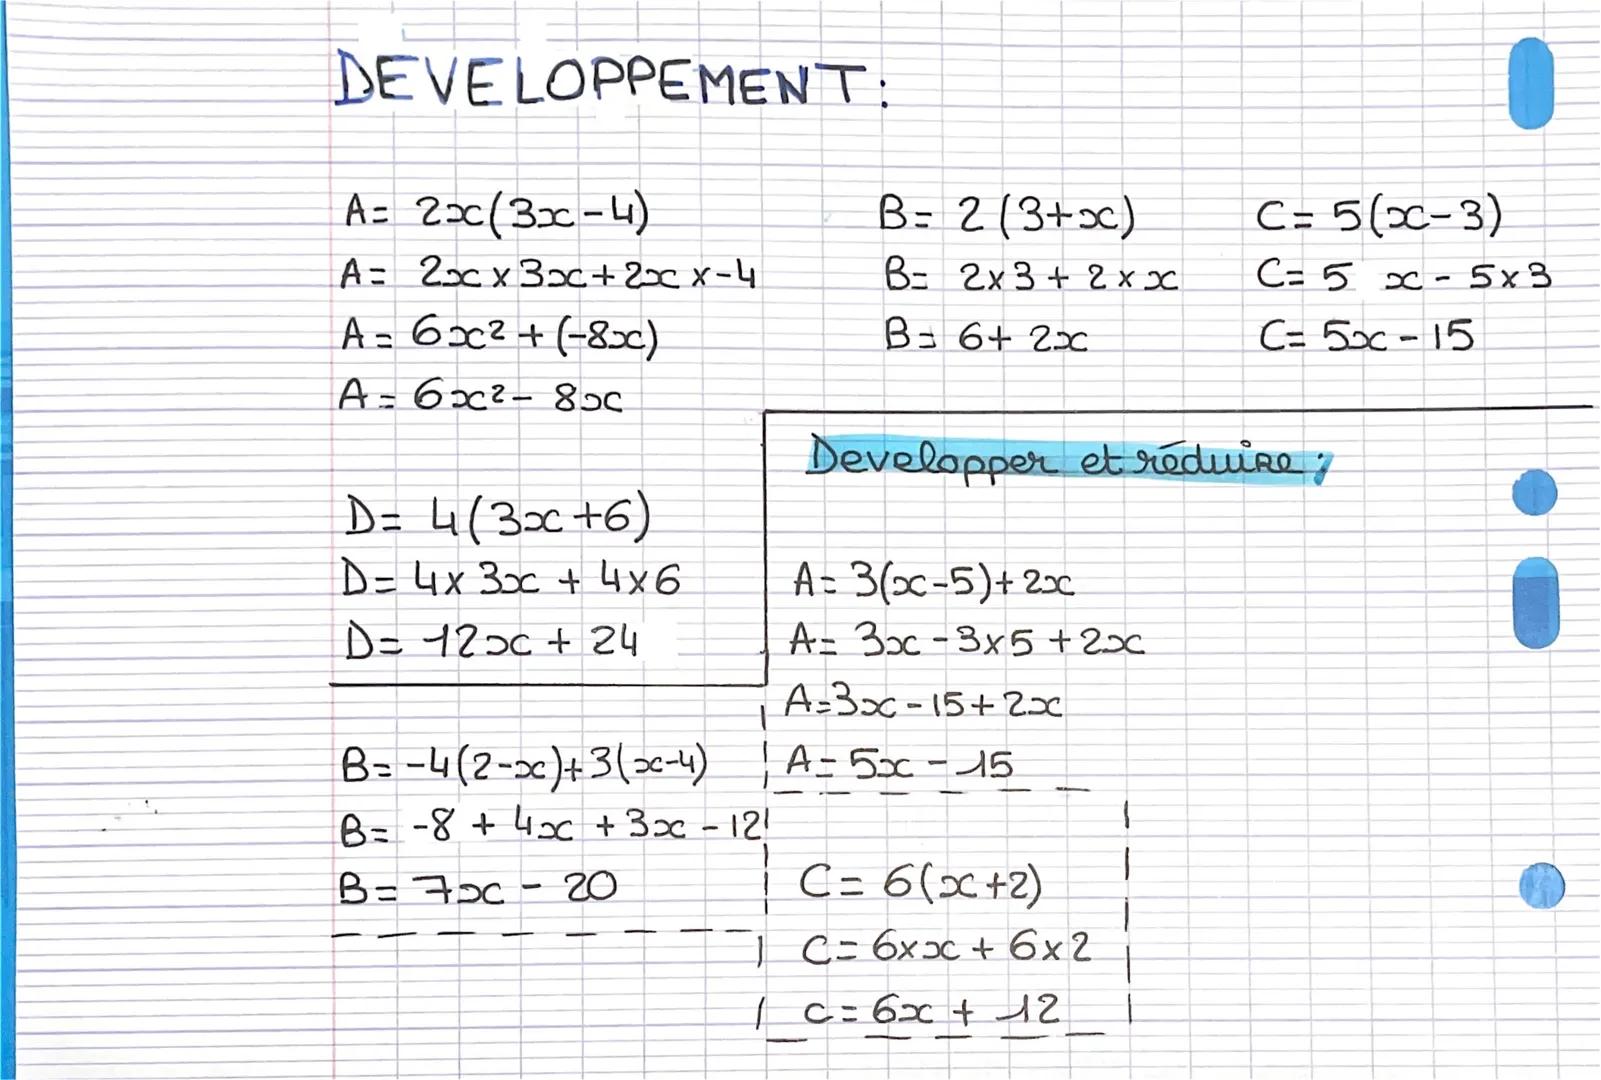 DEVELOPPEMENT:
A= 2x(3x-4)
A= 2x x 3x+2x x-4
A= 6x² + (-8x)
A= 6x² - 8x
B= 2 (3+x)
B= 2x3 + 2 x x
B= 6+ 2x
C= 5(x-3)
C= 5 x - 5x3
C= 5x - 15
D= 4(3x+6)
D= 4x 3x + 4x6
D= 12x + 24
Developper et réduire:
A= 3(x-5)+ 2x
A= 3x -3x5 +2x
A=3x - 15+ 2x
A= 5x - 15
B= -4(2-x)+3(x-4)
B= -8 + 4x +3x - 12
B= 7x - 20
C= 6(x+2)
C= 6xx + 6x2
c= 6x + 12